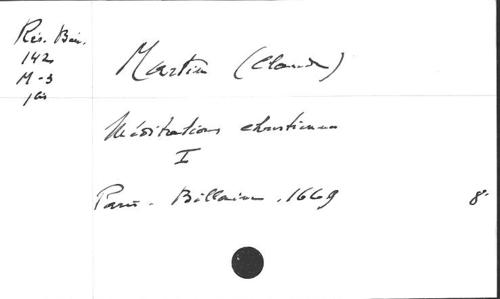 Rés. Bar.
142
M-3
Martin (Claude)
Méditations chrétiennes
I
Paris. Billaine. 1669 8°